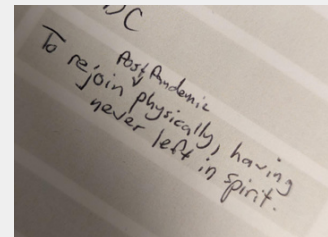 DC
Post Pandemic
To rejoin physically, having
never left in spirit.